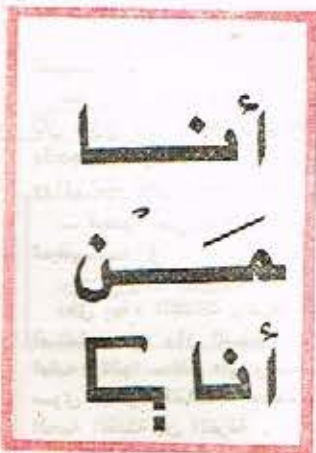 أنا
مَنْ
أنا؟